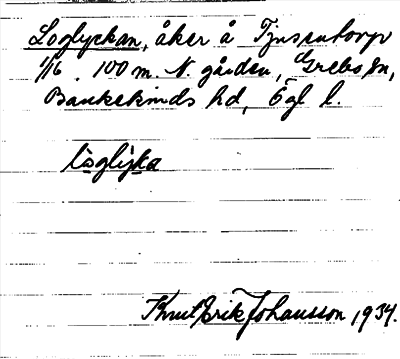 Loglyckan, åker å Tjusentorp
1/16. 100 m. N. gården, Grebo sn,
Bankekinds hd, Ögl l.
löglyka
Knut Erik Johansson, 1934.